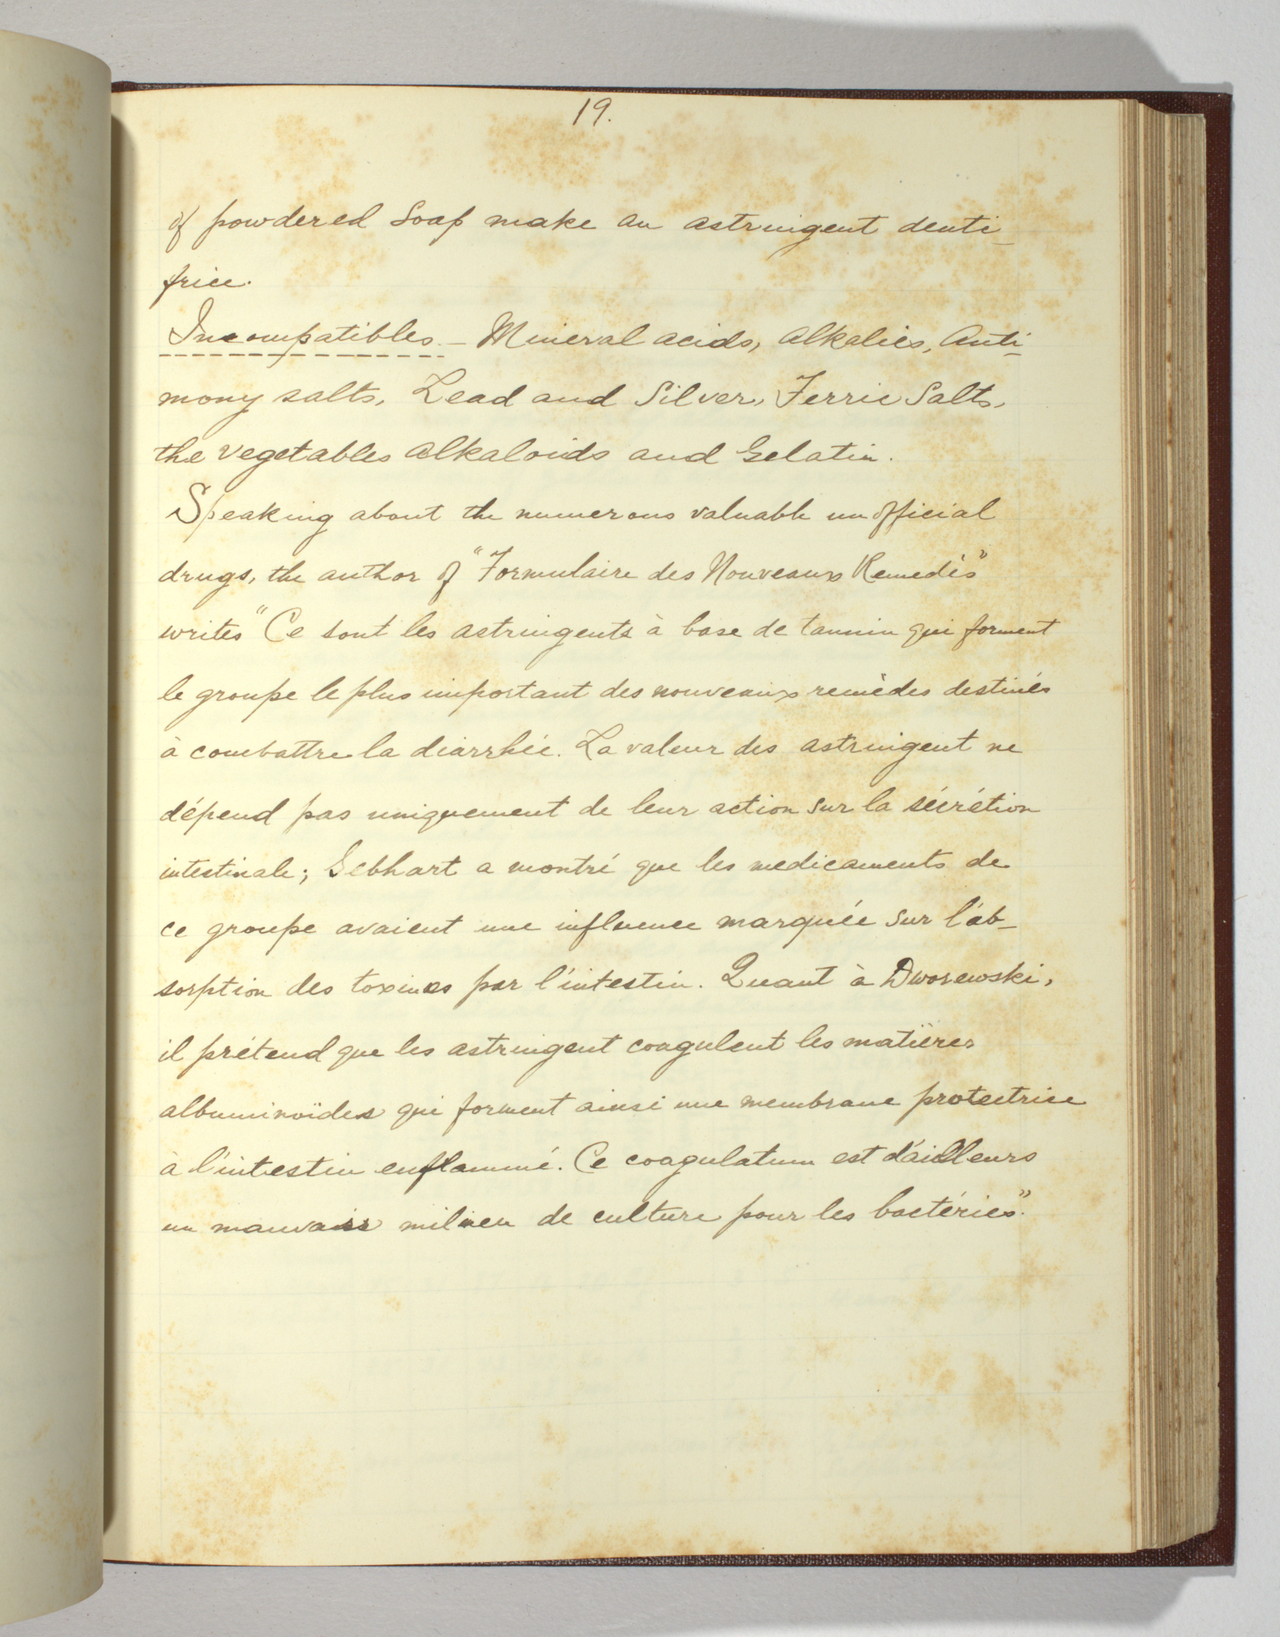 19.
of powdered Soap make an astringent denti_
frice.
Incompatibles._ Mineral acids, Alkalies, Anti_
mony salts, Lead and Silver, Ferric Salts,
the vegetables alkaloids and Gelatin.
Speaking about the numerous valuable unofficial
drugs, the author of "Formulaire des Nouveaux Remedès"
writes "Ce sont les astringents à base de tannin qui forment
le groupe le plus important des nouveaux remèdes destinés
à combattre la diarrhée. La valeur des astringent ne
dépend pas uniquement de leur action sur la sécrétion
intestinale; Gebhart a montré que les medicaments de
ce groupe avaient une influence marquée sur l'ab_
sorption des toxines par l'intestin. Quant à Dworewski,
il prétend que les astringent coagulent les matières
albuminoïdes qui forment ainsi une membrane protectrice
à l'intestin enflammé. Ce coagulatum est d'ailleurs
un mauvais milieu de culture pour les bactéries".